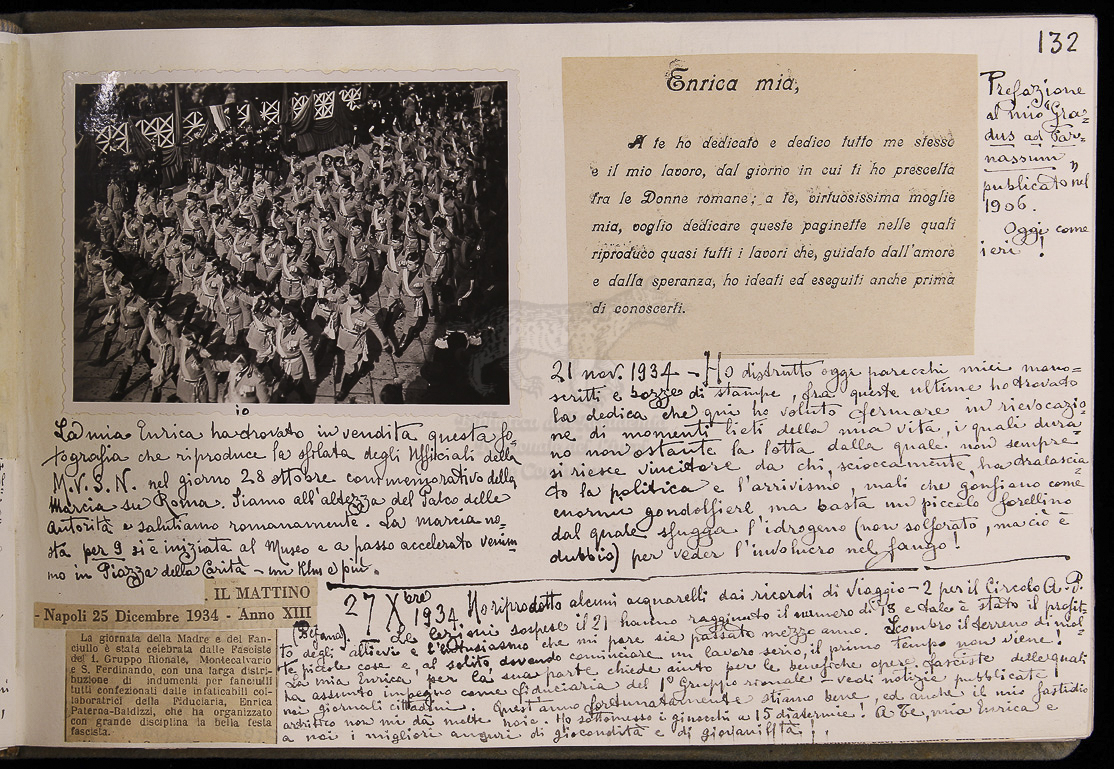 132
Enrica mia,
A te ho dedicato e dedico tutto me stesso
e il mio lavoro, dal giorno in cui ti ho prescelta
fra le Donne romane; a te, virtuosissima moglie
mia, voglio dedicare queste paginette nelle quali
riproduco quasi tutti i lavori che, guidato dall'amore
e dalla speranza, ho ideati ed eseguiti anche prima
di conoscerti.
Prefazione
al mio "Gra=
dus ad Par=
nassum"
publicato nel
1906.
Oggi come
ieri!
io
La mia Enrica ha trovato in vendita questa fo=
tografia che riproduce la sfilata degli Ufficiali della
M.V.S.N. nel giorno 28 ottobre commemorativo della
Marcia su Roma. Siamo all'altezza del Palco delle
Autorità e salutiamo romanamente. La marcia no=
sta per 9 si è iniziata al Museo e a passo accelerato venim=
mo in Piazza della Carità - un Klm e più.
21 nov. 1934 - Ho distrutto oggi parecchi miei mano=
scritti e bozze di stampe, fra queste ultime ho trovato
la dedica che qui ho voluto fermare in rievocazio=
ne di momenti lieti della mia vita, i quali dura=
no non ostante la lotta dalla quale non sempre
si riesce vincitore da chi, scioccamente, ha tralascia=
to la politica e l'arrivismo, mali che gonfiano come
enormi gondolfiere ma basta un piccolo forellino
dal quale sfugga l'idrogeno (non solforato, ma ciò è
dubbio) per veder l'involucro nel fango!
IL MATTINO
- Napoli 25 Dicembre 1934 - Anno XIII
La giornata della Madre e del Fan-
ciullo è stata celebrata dalle Fasciste
del 1. Gruppo Rionale, Montecalvario
e S. Ferdinando, con una larga distri-
buzione di indumenti per fanciulli
tutti confezionati dalle infaticabili col-
laboratrici della Fiduciaria, Enrica
Paterna-Baldizzi, che ha organizzato
con grande disciplina la bella festa
fascista.
27 Xbre 1934. Ho riprodotto alcuni acquarelli dai ricordi di Viaggio - 2 per il Circolo A. P.
(Befana). Le lezioni sospese il 21 hanno raggiunto il numero di 18 e tale è stato il profit=
to degli allievi e l'entusiasmo che mi pare sia passato mezzo anno. Scombro il terreno di mol=
te piccole cose e, al solito, dovendo cominciare un lavoro serio, il primo tempo non viene!
La mia Enrica, per la sua parte chiede aiuto per le benefiche opere fasciste delle quali
ha assunto impegno come fiduciaria del 1° Gruppo rionale - vedi notizie pubblicate
nei giornali cittadini. Quest'anno fortunatamente stiamo bene, ed anche il mio fastidio
artritico non mi dà molte noie. Ho sottomesso i ginocchi a 15 diatermie! A Te, mia Enrica e
a noi i migliori auguri di giocondità e di giovanilità!